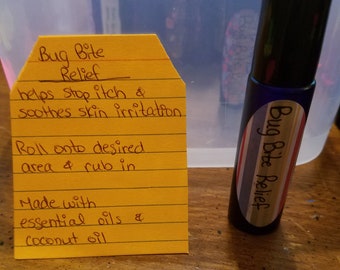 Bug Bite
Relief
helps stop itch &
soothes skin irritation
Roll onto desired
area & rub in
Made with
essential oils &
coconut oil
Bug Bite Relief